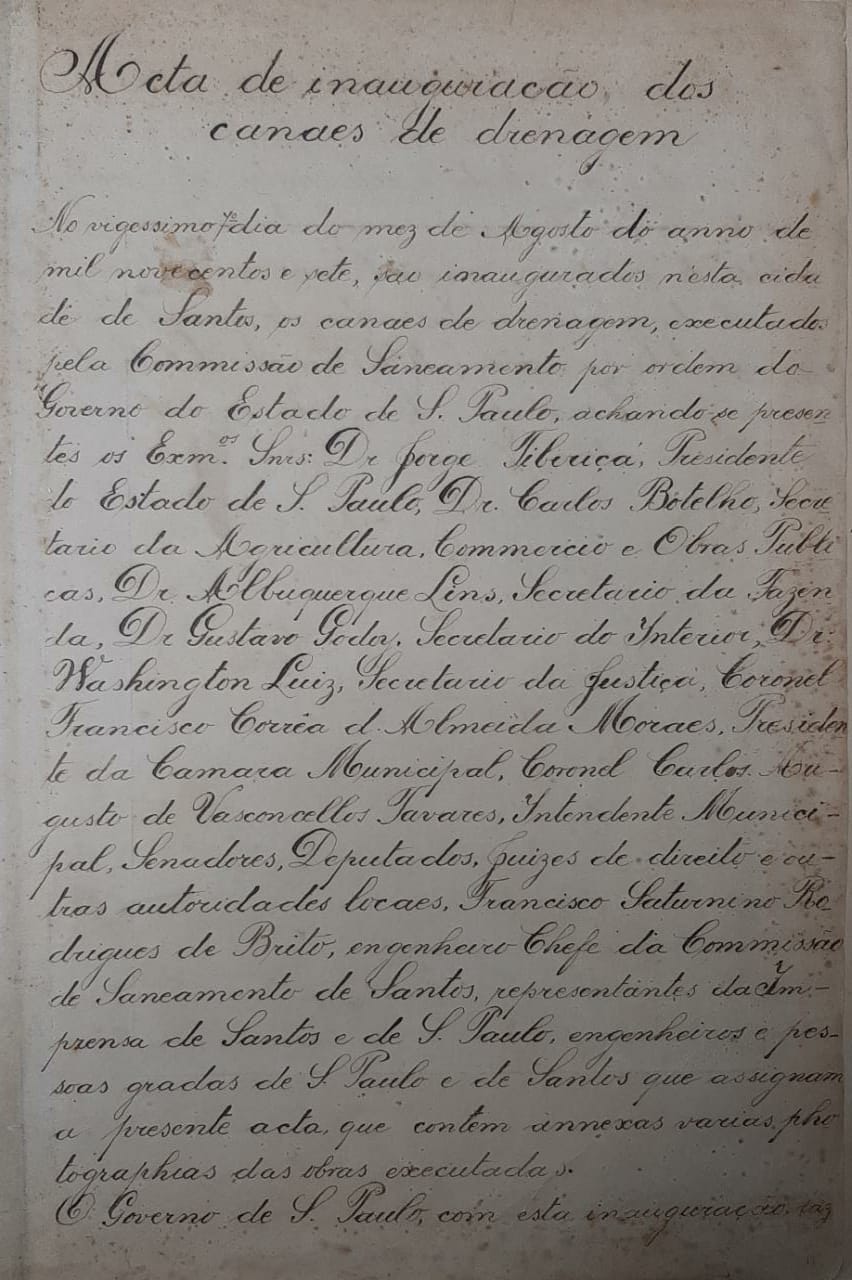 Acta de inauguração dos
canaes de drenagem
No vigessimo 7º dia do mez de Agosto do anno de
mil novecentos e sete, são inaugurados n'esta cida
de de Santos, os canaes de drenagem, executados
pela Commissão de Saneamento por ordem do
Governo do Estado de S. Paulo, achando-se presen
tes os Exm.os Snrs: Dr Jorge Tibiriçá, Presidente
do Estado de S. Paulo, Dr. Carlos Botelho, Secre
tario da Agricultura, Commercio e Obras Publi
cas, Dr. Albuquerque Lins, Secretario da Fazen
da, Dr Gustavo Godoy, Secretario do Interior, Dr.
Washington Luiz, Secretario da Justiça, Coronel
Francisco Corrêa d. Almeida Moraes, Presiden
te da Camara Municipal, Coronel Carlos Au-
gusto de Vasconcellos Tavares, Intendente Munici-
pal, Senadores, Deputados, Juizes de direito e ou-
tras autoridades locaes, Francisco Saturnino Ro
drigues de Brito, engenheiro Chefe da Commissão
de Saneamento de Santos, representantes da Im-
prensa de Santos e de S. Paulo, engenheiros e pes-
soas gradas de S. Paulo e de Santos que assignam
a presente acta, que contém annexas varias pho
tographias das obras executadas.
O Governo de S. Paulo, com esta inauguração, faz